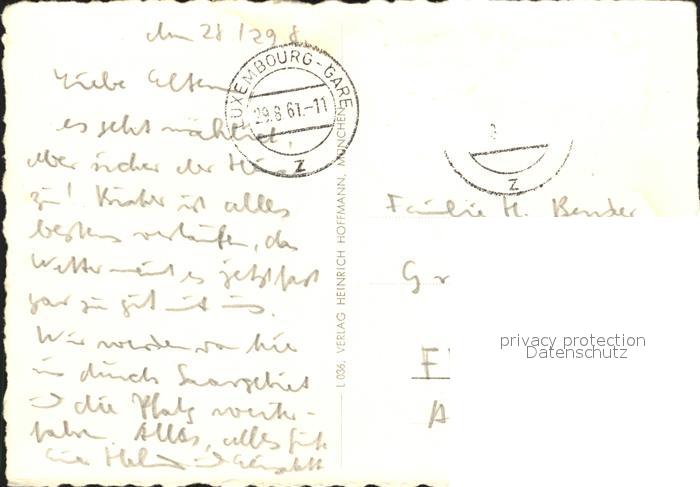 den 28/29 8.
Liebe Eltern
es geht
aber sicher der
zu! Bisher ist alles
bestens verlaufen, das
Wetter meint es jetzt fast
gar zu gut mit uns.
Wir werden von hier
aus durch Saargebiet
in die Pfalz weiter-
fahren. Alles, alles gute
Eure
LUXEMBOURG-GARE
29.8.61.-11
Z
L 036, VERLAG HEINRICH HOFFMANN, MÜNCHEN
Z
Familie H. Bender
G
F
A
privacy protection
Datenschutz